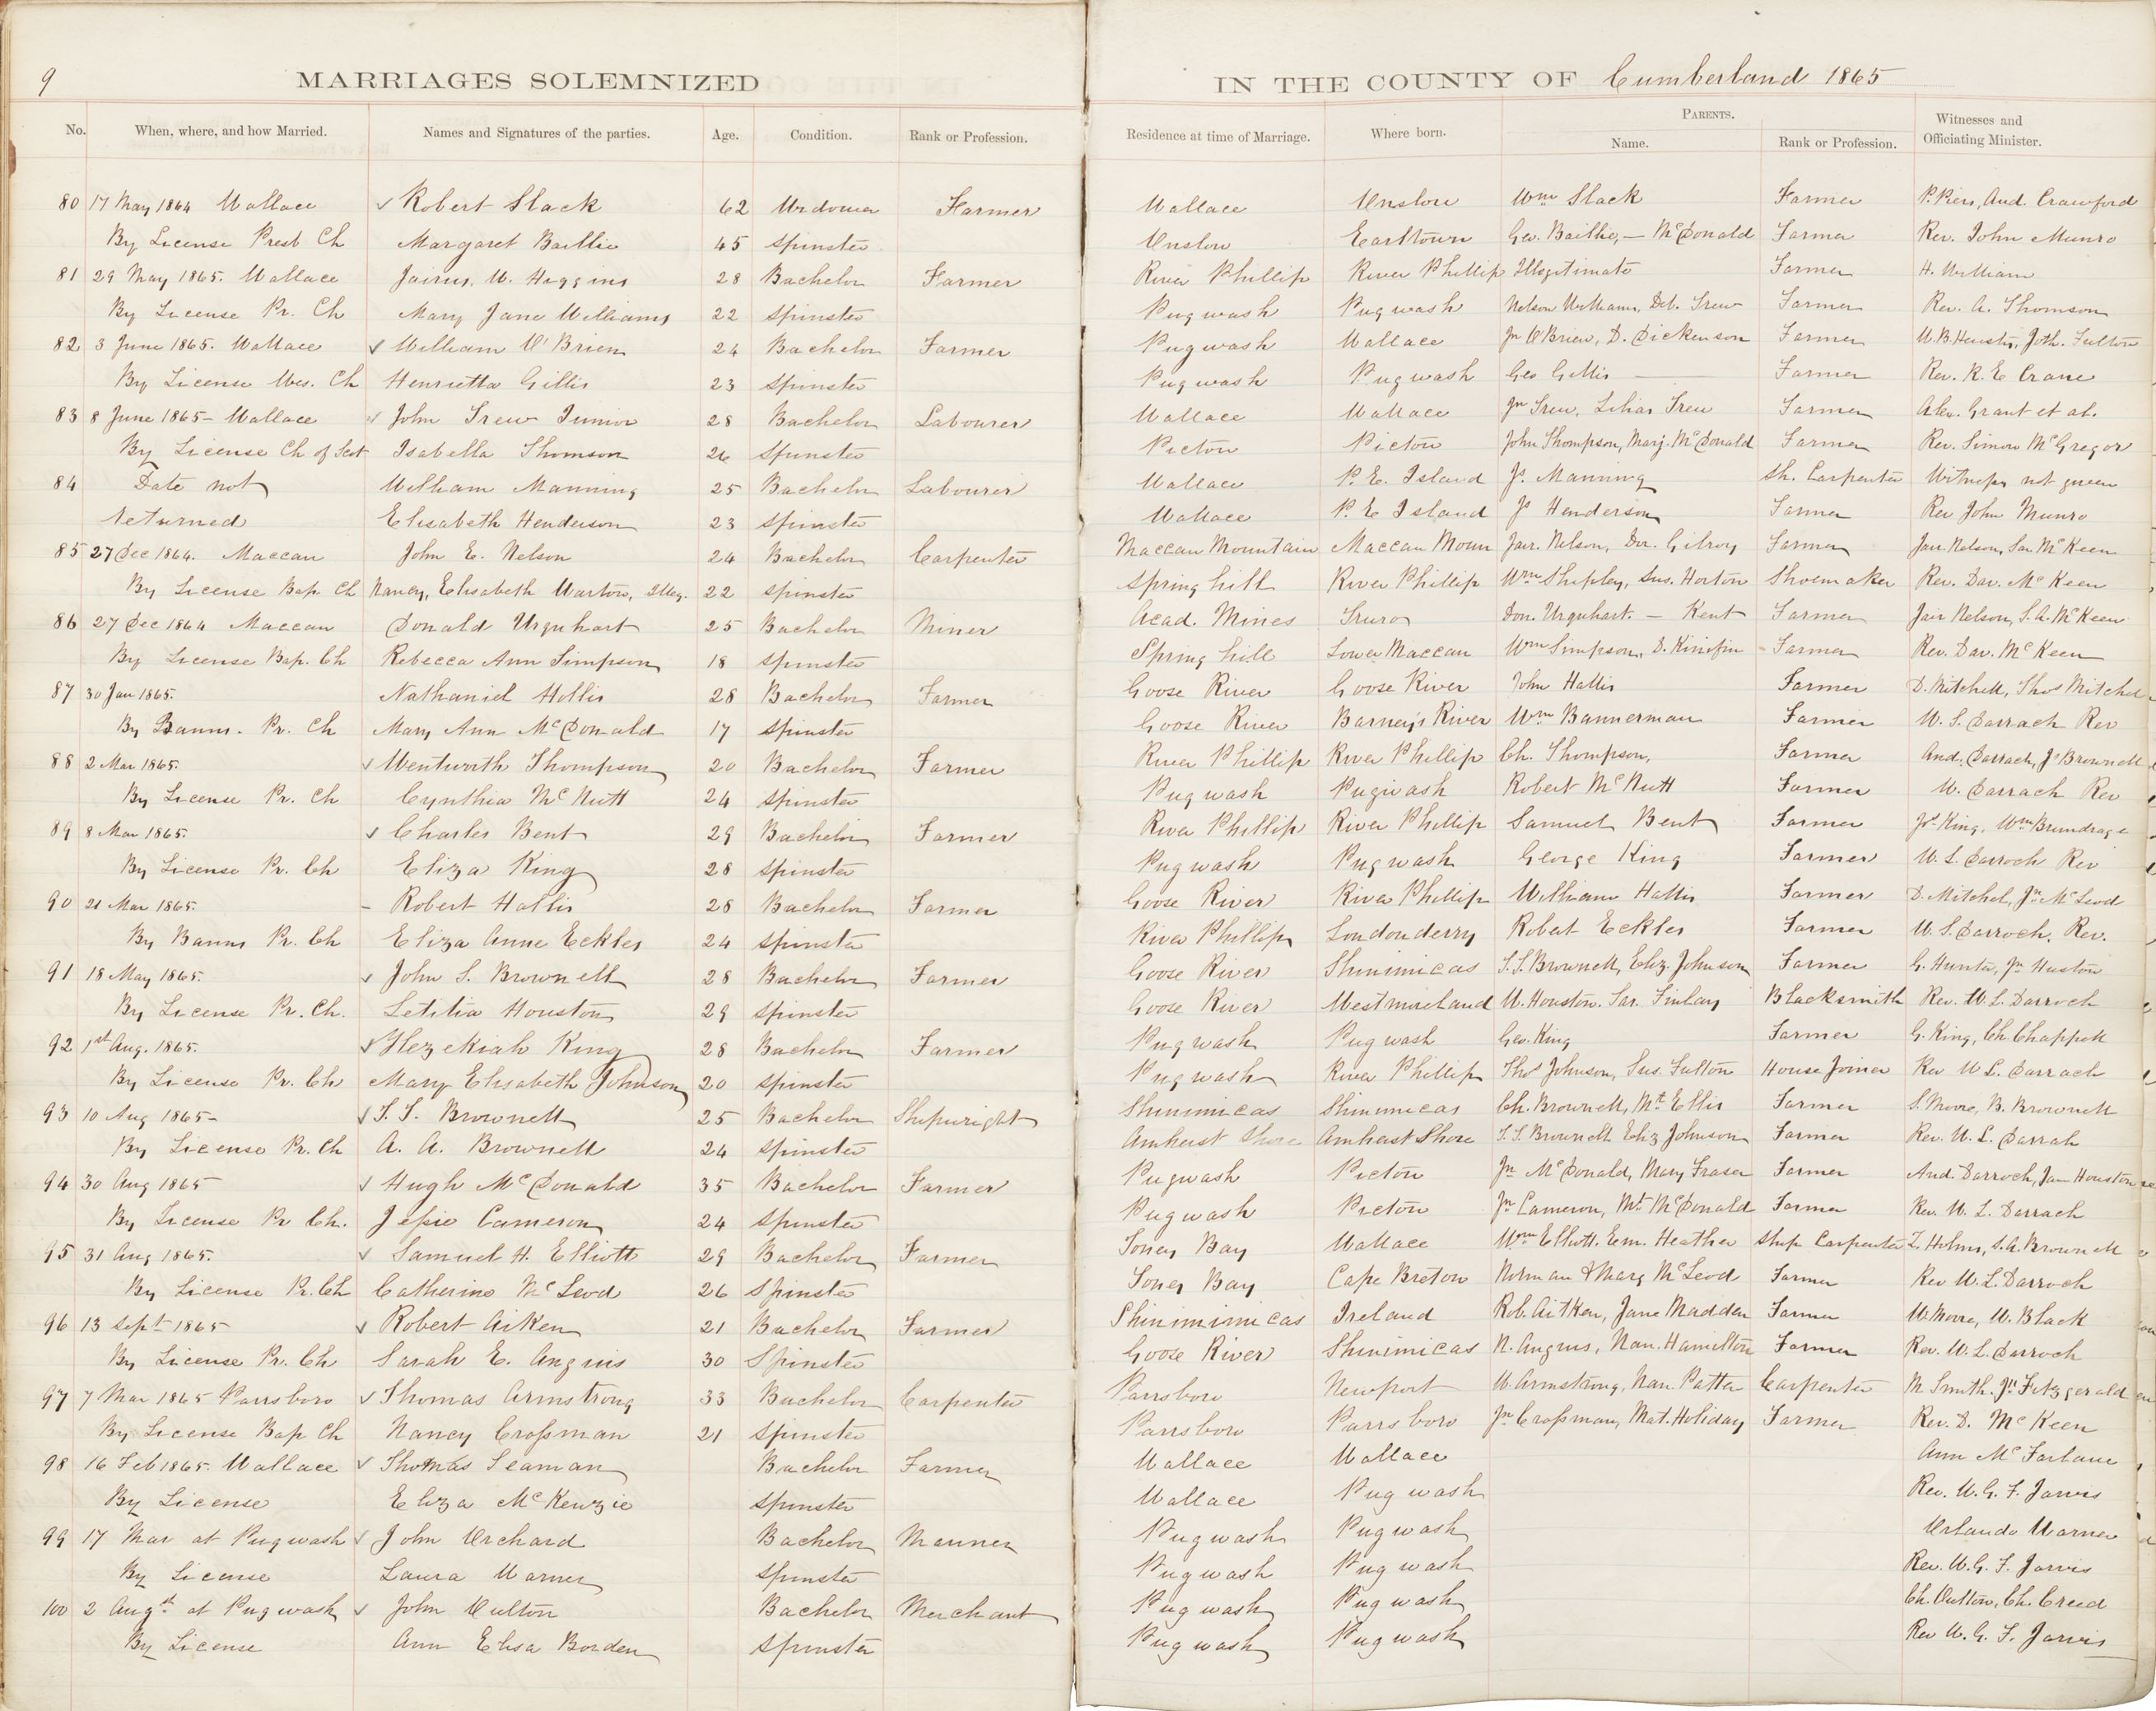 9
MARRIAGES SOLEMNIZED IN THE COUNTY OF Cumberland 1865
No. When, where, and how Married. Names and Signatures of the parties. Age. Condition. Rank or Profession. Residence at time of Marriage. Where born. PARENTS. Name. Rank or Profession. Witnesses and Officiating Minister.
80 17 May 1864 Wallace ✓ Robert Slack 62 Widower Farmer Wallace Onslow Wm Slack Farmer P. Piers, And. Crawford
By License Presb Ch Margaret Baillie 45 Spinster Onslow Earltown Geo. Baillie, — McDonald Farmer Rev. John Munro
81 29 May 1865. Wallace Jairus. W. Higgins 28 Bachelor Farmer River Phillip River Phillip Illegitimate Farmer H. William
By License Pr. Ch Mary Jane Williams 22 Spinster Pugwash Pugwash Nelson Williams, Deb. Trew Farmer Rev. A. Thomson
82 3 June 1865. Wallace ✓ William O'Brien 24 Bachelor Farmer Pugwash Wallace Jn O'Brien, D. Dickenson Farmer W. B. Huestis, Joth. Fulton
By License Wes. Ch Henrietta Gillis 23 Spinster Pugwash Pugwash Geo Gillis — Farmer Rev. R. E Crane
83 8 June 1865- Wallace ✓ John Trew Junior 28 Bachelor Labourer Wallace Wallace Jn Trew, Lilias Trew Farmer Alex. Grant et al.
By License Ch of Scot Isabella Thomson 26 Spinster Pictou Pictou John Thompson, Marj. McDonald Farmer Rev. Simon McGregor
84 Date not William Manning 25 Bachelor Labourer Wallace P. E. Island Js. Manning Sh. Carpenter Witness not given
Returned Elisabeth Henderson 23 Spinster Wallace P. E Island Js Henderson Farmer Rev John Munro
85 27 Dec 1864. Maccan John E. Nelson 24 Bachelor Carpenter Maccan Mountain Maccan Moun Jair. Nelson, Dor. Gilroy Farmer Jair Nelson, Sar McKeen
By License Bap. Ch Nancy, Elisabeth Warton, Illeg. 22 Spinster Spring hill River Phillip Wm Shipley, Sus. Horton Shoemaker Rev. Dav. McKeen
86 27 Dec 1864 Maccan Donald Urquhart 25 Bachelor Miner Acad. Mines Truro Don. Urquhart. — Kent Farmer Jair Nelson, S. A. McKeen
By License Bap. Ch Rebecca Ann Simpson 18 Spinster Spring hill Lower Maccan Wm Simpson, D. Kinifin Farmer Rev. Dav. McKeen
87 30 Jan 1865. Nathaniel Hollis 28 Bachelor Farmer Goose River Goose River John Hallis Farmer D. Mitchell, Thos Mitchel
By Banns. Pr. Ch Mary Ann McDonald 17 Spinster Goose River Barney's River Wm Bannerman Farmer W. S. Darrach Rev
88 2 Mar 1865. ✓ Wentworth Thompson 20 Bachelor Farmer River Phillip River Phillip Ch. Thompson, Farmer And. Darrach, Js Brownell
By License Pr. Ch Cynthia McNutt 24 Spinster Pugwash Pugwash Robert McNutt Farmer W. Darrach Rev
89 8 Mar 1865. ✓ Charles Bent 29 Bachelor Farmer River Phillip River Phillip Samuel Bent Farmer Js King, Wm Brundrage
By License Pr. Ch Eliza King 28 Spinster Pugwash Pugwash George King Farmer W. L. Darroch Rev
90 21 Mar 1865. – Robert Hallis 28 Bachelor Farmer Goose River River Phillip William Hallis Farmer D. Mitchel, Jn McLeod
By Banns Pr. Ch Eliza Anne Eckles 24 Spinster River Phillip Londonderry Robert Eckles Farmer W. S. Darroch. Rev.
91 18 May 1865. ✓ John S. Brownell 28 Bachelor Farmer Goose River Shinimicas T. S. Brownell, Eliz. Johnson Farmer G. Hunter, Jn Huston
By License Pr. Ch. Letitia Houston 29 Spinster Goose River Westmoreland W. Houston. Sar. Finlay Blacksmith Rev. W. L. Darroch
92 1st Aug. 1865. ✓ Hezekiah King 28 Bachelor Farmer Pugwash Pugwash Geo. King Farmer G. King, Ch. Chappell
By License Pr. Ch Mary Elisabeth Johnson 20 Spinster Pugwash River Phillip Thos Johnson, Sus. Fulton House Joiner Rev W. L. Darrach
93 10 Aug 1865- ✓ T. T. Brownell 25 Bachelor Shipwright Shinimicas Shinimicas Ch. Brownell, Mt Ellis Farmer S. Moore, B. Brownell
By License Pr. Ch A. A. Brownell 24 Spinster Amherst Shore Amherst Shore T. S. Brownell Eliz Johnson Farmer Rev. W. L. Darrah
94 30 Aug 1865- ✓ Hugh McDonald 35 Bachelor Farmer Pugwash Pictou Jn McDonald, Mary Fraser Farmer And. Darroch, Jam Houston
By License Pr Ch. Jessie Cameron 24 Spinster Pugwash Pictou Jn Cameron, Mt McDonald Farmer Rev. W. L. Darrach
95 31 Aug 1865. ✓ Samuel H. Elliott 29 Bachelor Farmer Toney Bay Wallace Wm Elliott. Em. Heather Ship Carpenter L. Holms, S. A. Brownell
By License Pr. Ch Catherine McLeod 26 Spinster Toney Bay Cape Breton Norman & Marg McLeod Farmer Rev W. L. Darroch
96 13 Sept 1865 ✓ Robert Aiken 21 Bachelor Farmer Shinimimicas Ireland Rob. Aitken, Jane Madden Farmer W. Moore, W. Black
By License Pr. Ch Sarah E. Angus 30 Spinster Goose River Shinimicas N. Angus, Nan. Hamilton Farmer Rev. W. L. Darroch
97 7 Mar 1865 Parrsboro ✓ Thomas Armstrong 33 Bachelor Carpenter Parrsboro Newport W. Armstrong, Nan. Patter Carpenter M Smith. Jn Fitzgerald
By License Bap Ch Nancy Crossman 21 Spinster Parrsboro Parrsboro Jn Crossman, Mat. Holiday Farmer Rev. D. McKeen
98 16 Feb 1865. Wallace ✓ Thomas Seaman Bachelor Farmer Wallace Wallace Ann McFarlane
By License Eliza McKenzie Spinster Wallace Pugwash Rev. W. G. T. Jarvis
99 17 Mar at Pugwash ✓ John Orchard Bachelor Mariner Pugwash Pugwash Orlando Warner
By License Laura Warner Spinster Pugwash Pugwash Rev. W. G. T. Jarvis
100 2 Augst at Pugwash ✓ John Oulton Bachelor Merchant Pugwash Pugwash Ch. Oulton, Ch. Creed
By License Ann Elisa Borden Spinster Pugwash Pugwash Rev W. G. T. Jarvis